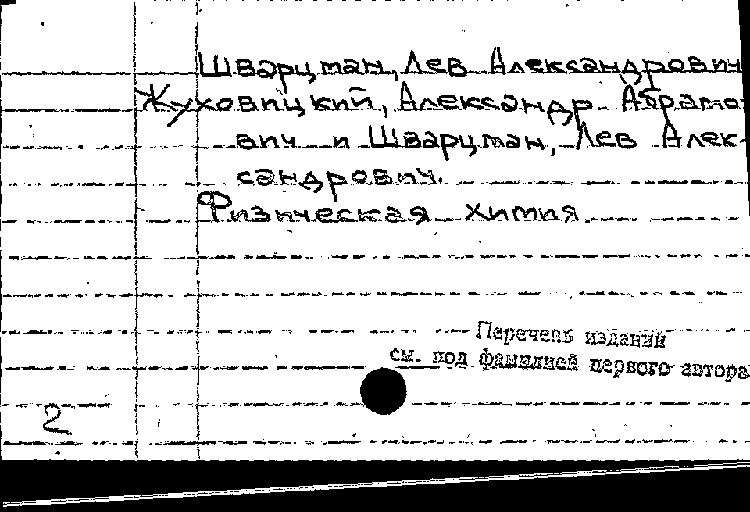 Шварцман, Лев Александрович
Жуховицкий, Александр Абрамо-
вич и Шварцман, Лев Алек-
сандрович.
Физическая химия.
Перечень изданий
см. под фамилией первого автора
2